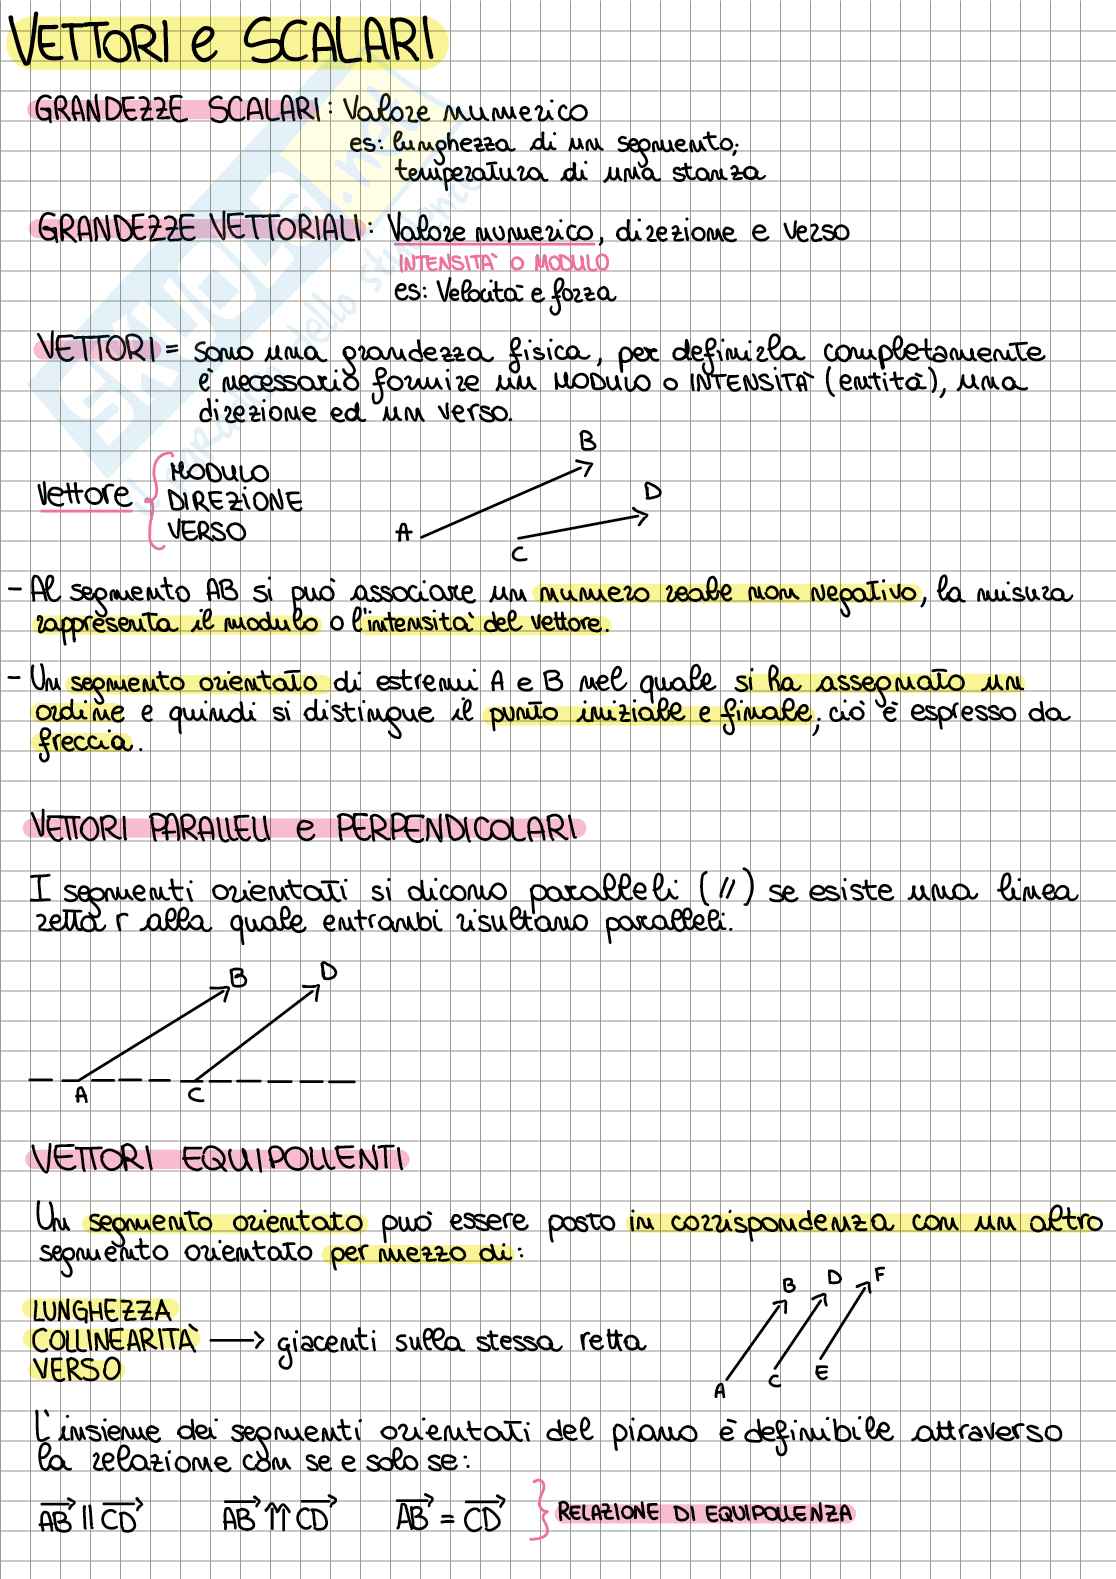 VETTORI e SCALARI
GRANDEZZE SCALARI: Valore numerico
es: lunghezza di un segmento;
temperatura di una stanza
GRANDEZZE VETTORIALI: Valore numerico, direzione e verso
INTENSITÀ O MODULO
es: Velocità e forza
VETTORI = sono una grandezza fisica, per definirla completamente
è necessario fornire un MODULO o INTENSITÀ (entità), una
direzione ed un verso.
Vettore { MODULO
DIREZIONE
VERSO
A B C D
- Al segmento AB si può associare un numero reale non negativo, la misura
rappresenta il modulo o l'intensità del vettore.
- Un segmento orientato di estremi A e B nel quale si ha assegnato un
ordine e quindi si distingue il punto iniziale e finale, ciò è espresso da
freccia.
VETTORI PARALLELI e PERPENDICOLARI
I segmenti orientati si dicono paralleli (//) se esiste una linea
retta r alla quale entrambi risultano paralleli.
A B C D
VETTORI EQUIPOLLENTI
Un segmento orientato può essere posto in corrispondenza con un altro
segmento orientato per mezzo di:
LUNGHEZZA
COLLINEARITÀ → giacenti sulla stessa retta
VERSO
A B C D E F
L'insieme dei segmenti orientati del piano è definibile attraverso
la relazione con se e solo se:
AB || CD AB ⇈ CD AB = CD } RELAZIONE DI EQUIPOLLENZA
SKUOLA.net